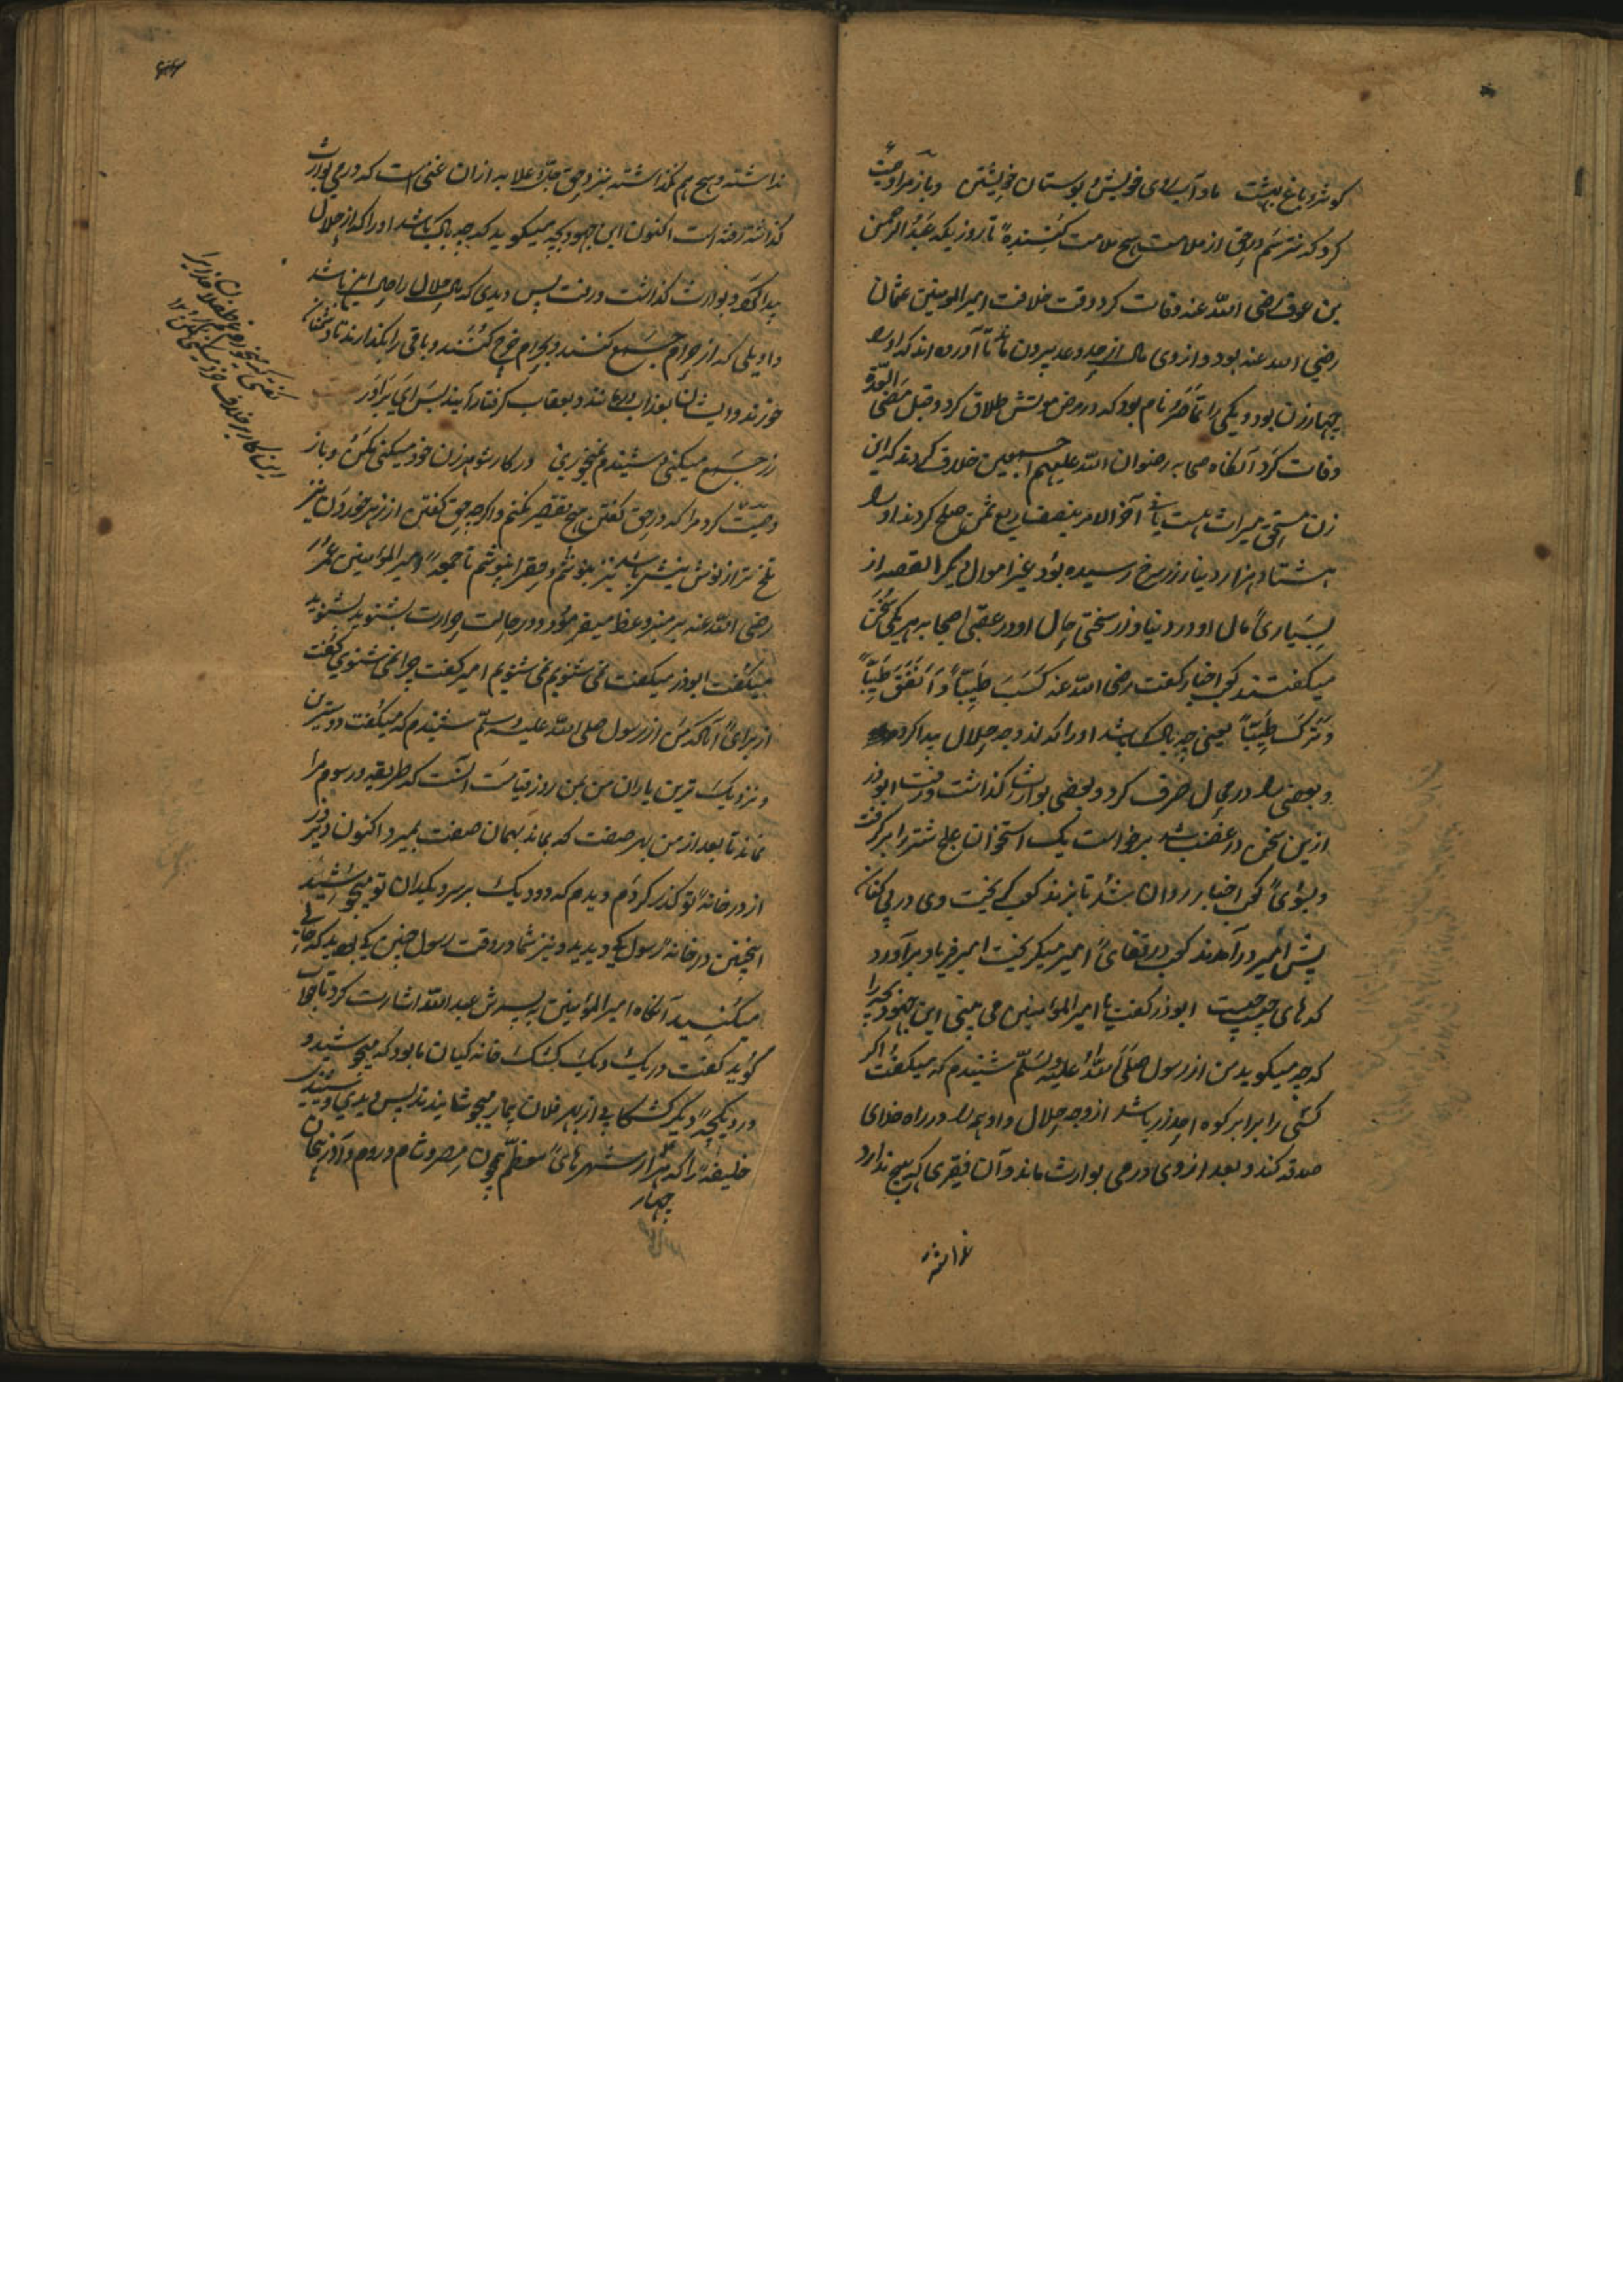 کوثر و باغ بهشت ما و آب روی خویش و بوستان خویشتن و باز مرا وصیت
کرد که نترسم در حق از ملامت هیچ ملامت کننده تا روزیکه عبد الرحمن
بن عوف رضی الله عنه وفات کرد وقت خلافت امیر المومنین عثمان
رضی الله عنه بود و از وی مال از حد و عد بیرون ماند تا آورده اند که او را
چهار زن بود و یکی را تماضر نام بود که در مرض موتش طلاق کرد و قبل مضی العدة
وفات کرد آنگاه صحابه رضوان الله علیهم اجمعین خلاف کردند که این
زن مستحق میراث هست یا نه آخر الامر بنصف ربع ثمن صلح کردند او را
هشتاد هزار دینار زر سرخ رسیده بود غیر اموال دیگر القصه از
بسیاری مال او در دنیا و از سختی حال او در عقبی اصحابه هر یکی سخن
میگفتند کعب اخبار گفت رضی الله عنه کسب طیبا و انفق طیبا
و ترک طیبا یعنی چه باک باشد او را که از وجه حلال پیدا کرد
و بعضی را در حال صرف کرد و بعضی بوارث گذاشت و رفت ابوذر
ازین سخن در غضب شد برخاست یک استخوان شتر را برگرفت
و بسوی کعب اخبار روان شد تا بزند کعب گریخت وی در پی کنان
پیش امیر در آمدند کعب در قفای امیر میگریخت امیر فریاد برآورد
که های چیست ابوذر گفت یا امیر المومنین می بینی این جهود بچه را
که چه میگوید من از رسول صلی الله علیه وسلم شنیدم که میگفت اگر
کسی را برابر کوه احد زر باشد از وجه حلال و او همه را در راه خدای
صدقه کند و بعد از وی درمی بوارث ماند و آن فقیری که هیچ ندارد
نداشته و هیچ هم نگذاشته بنزد حق جل و علا به ازان غنی است که درمی بوارث
گذاشته رفته است اکنون این جهود بچه میگوید که چه باک باشد او را که از حلال
پیدا کرد و بوارث گذاشت و رفت پس دیدی که مال حلال را حال این باشد
واویلی که از حرام جمع کنند و بحرام خرج کنند و باقی را بگذارند تا دشمنان
خورند و ایشان بعذاب درمانند و بعقاب گرفتار آیند پس ای برادر
زر جمع میکنی و شنیدم نمیخوری در کار شوهر زن خود میکنی مکن و باز
وصیت کرد مرا که در حق گفتن هیچ تقصیر نکنم و اگرچه حق گفتن از زهر خوردن نیز
تلخ تر از نوش نیشتر باشد نیز بنوشم و حق را نپوشم تا جمعه امیر المومنین عمر
رضی الله عنه بر منبر وعظ میفرمود و در حالت حرارت بشنوید بشنوید
میگفت ابوذر میگفت نمی شنویم نمی شنویم امیر گفت چرا نمی شنوی گفت
از برای آنکه من از رسول صلی الله علیه وسلم شنیدم که میگفت دوسترین
و نزدیک ترین یاران من بمن روز قیامت آنست که طریقه و رسوم مرا
نماند تا بعد از من بهر صفت که بماند بهمان صفت بمیرد اکنون دیروز
از در خانه تو گذر کردم دیدم که دو دیک بر سر دیکدان تو میجوشید
اینچنین در خانه رسول کی دیدید و نیز شما در وقت رسول چنین کی بودید که حالی
میکنید آنگاه امیر المومنین پسرش عبد الله اشارت کرد تا جواب
گوید گفت در یک دیک کشک خانه گیان ما بود که میجوشید و
در دیکچه دیگر کشکابی از بهر فلان بیمار میجوشانیدند پس دیدی و شنیدی
خلیفه را که هزار شهر های معظم همچون مصر و شام و روم و آذربیجان
چهار